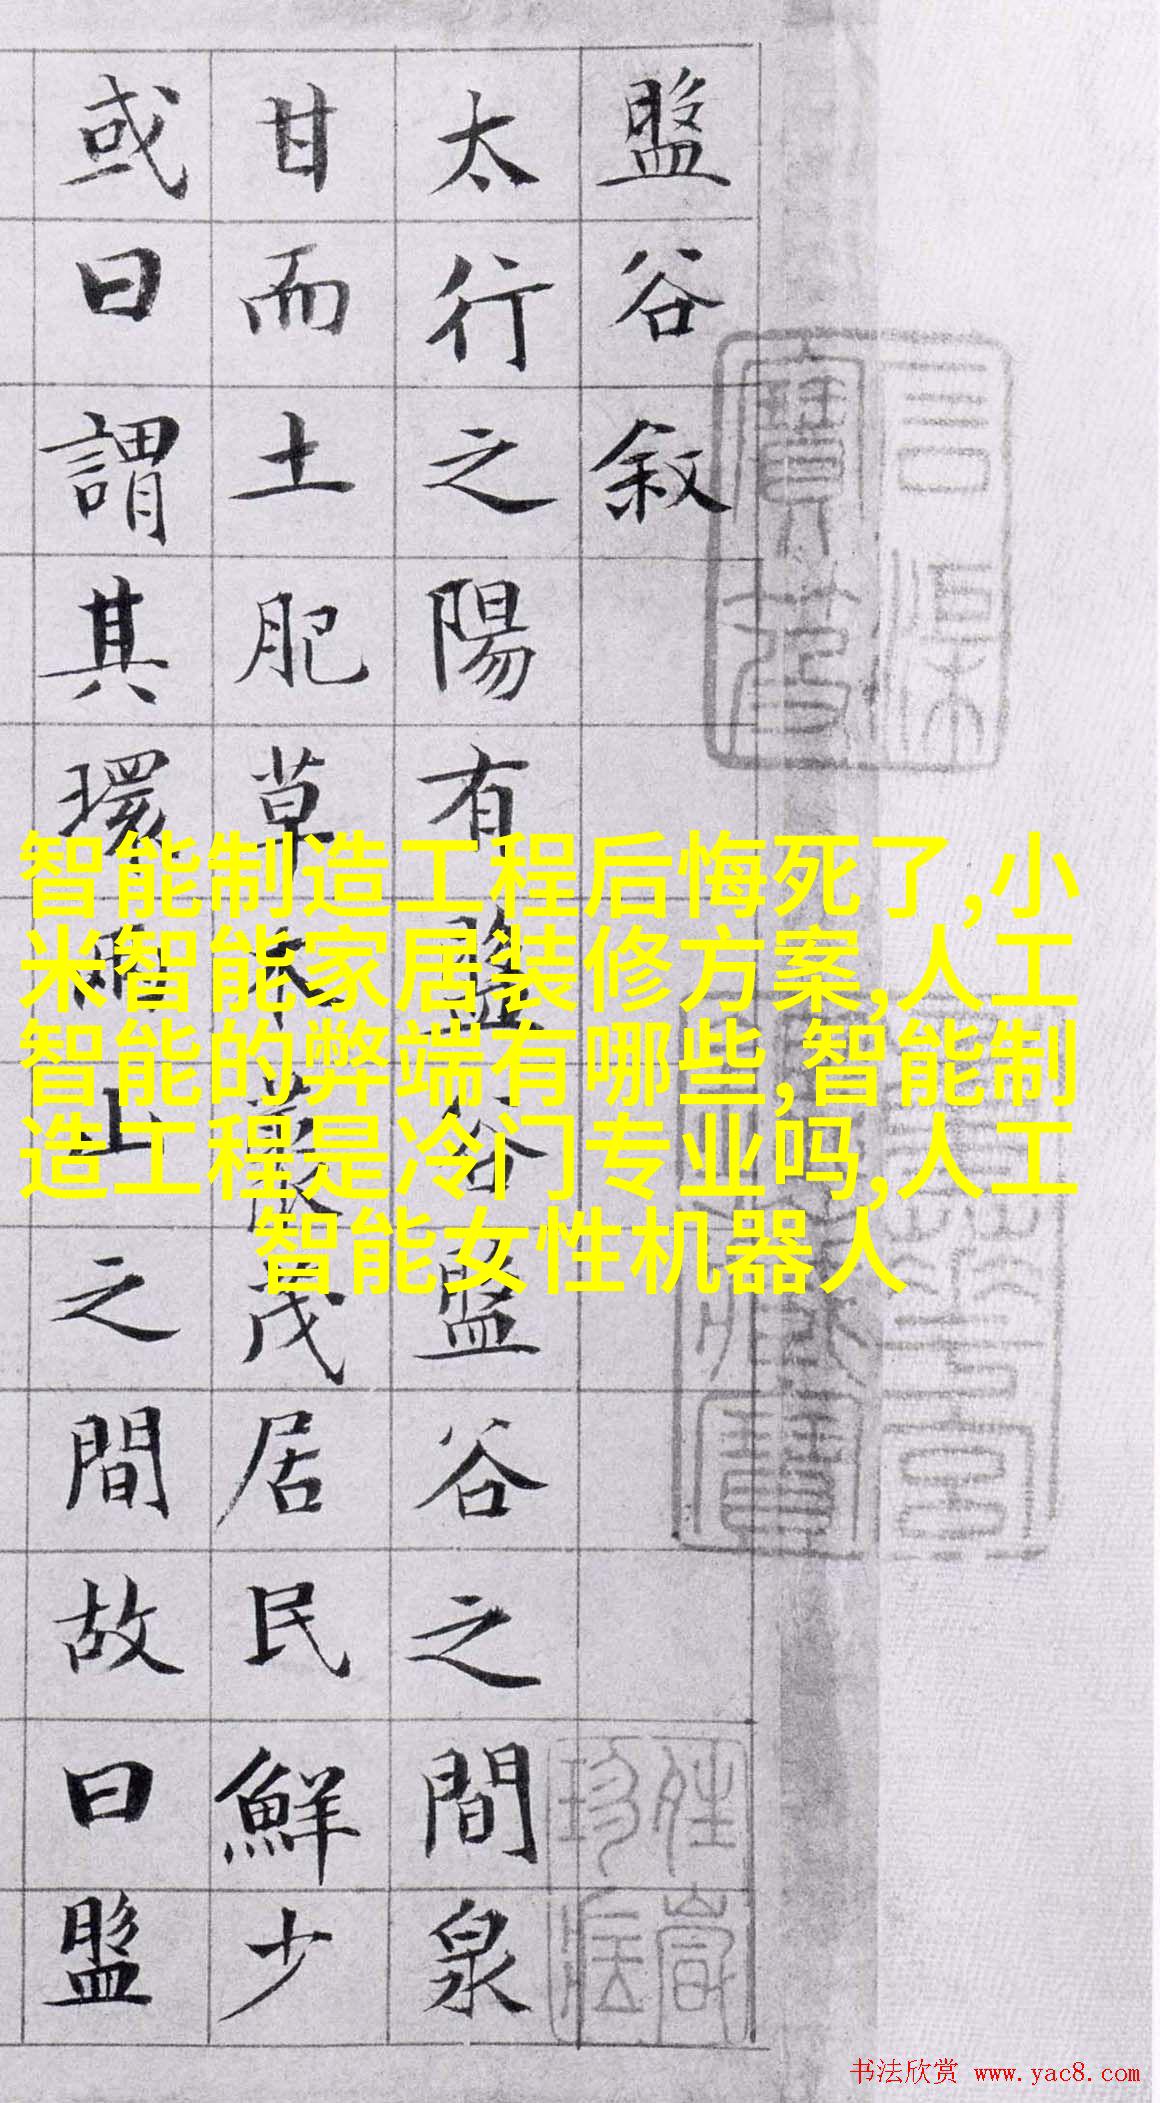 盤谷敘
太行之陽有盤谷盤谷之間泉
甘而土肥草木藂茂居民鮮少
或曰謂其環兩山之間故曰盤
智能制造工程后悔死了,小
米智能家居装修方案,人工
智能的弊端有哪些,智能制
造工程是冷门专业吗,人工
智能女性机器人
书法欣赏 www.yac8.com